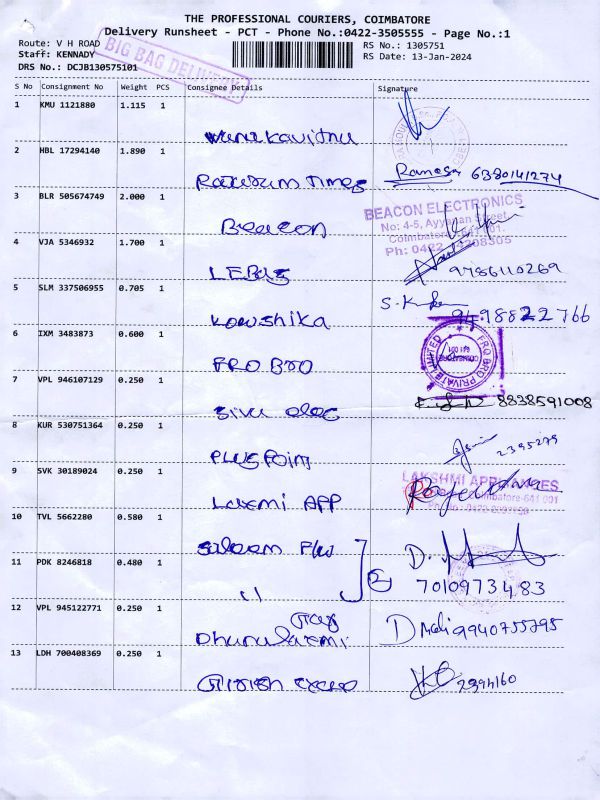 THE PROFESSIONAL COURIERS, COIMBATORE
Delivery Runsheet - PCT - Phone No.:0422-3505555 - Page No.:1
Route: V H ROAD
RS No.: 1305751
Staff: KENNADY
RS Date: 13-Jan-2024
DRS No.: DCJB130575101
BIG BAG DELIVERY
S No Consignment No Weight PCS Consignee Details Signature
1 KMU 1121880 1.115 1
2 HBL 17294140 1.890 1
Times Ramesh 6380141274
3 BLR 505674749 2.000 1
BEACON ELECTRONICS
No: 4-5, Ayyanan Street,
Coimbatore
Ph: 0422
Beacon
4 VJA 5346932 1.700 1
9786110269
5 SLM 337506955 0.705 1
S.K
Kowshika 9498822766
6 IXM 3483873 0.600 1
FRO BRO PRIVATE LIMITED
COIMBATORE
641 001
FRO BRO
7 VPL 946107129 0.250 1
8838591008
Siva elec
8 KUR 530751364 0.250 1
2395279
Plus Point
9 SVK 30189024 0.250 1
LAKSHMI APPLIANCES
Coimbatore-641 001
Laxmi APP
10 TVL 5662280 0.580 1
Saleem D.
11 PDK 8246818 0.480 1
7010973483
"
12 VPL 945122771 0.250 1
D Mali 9940755795
Dhanalaxmi
13 LDH 700408369 0.250 1
2394160